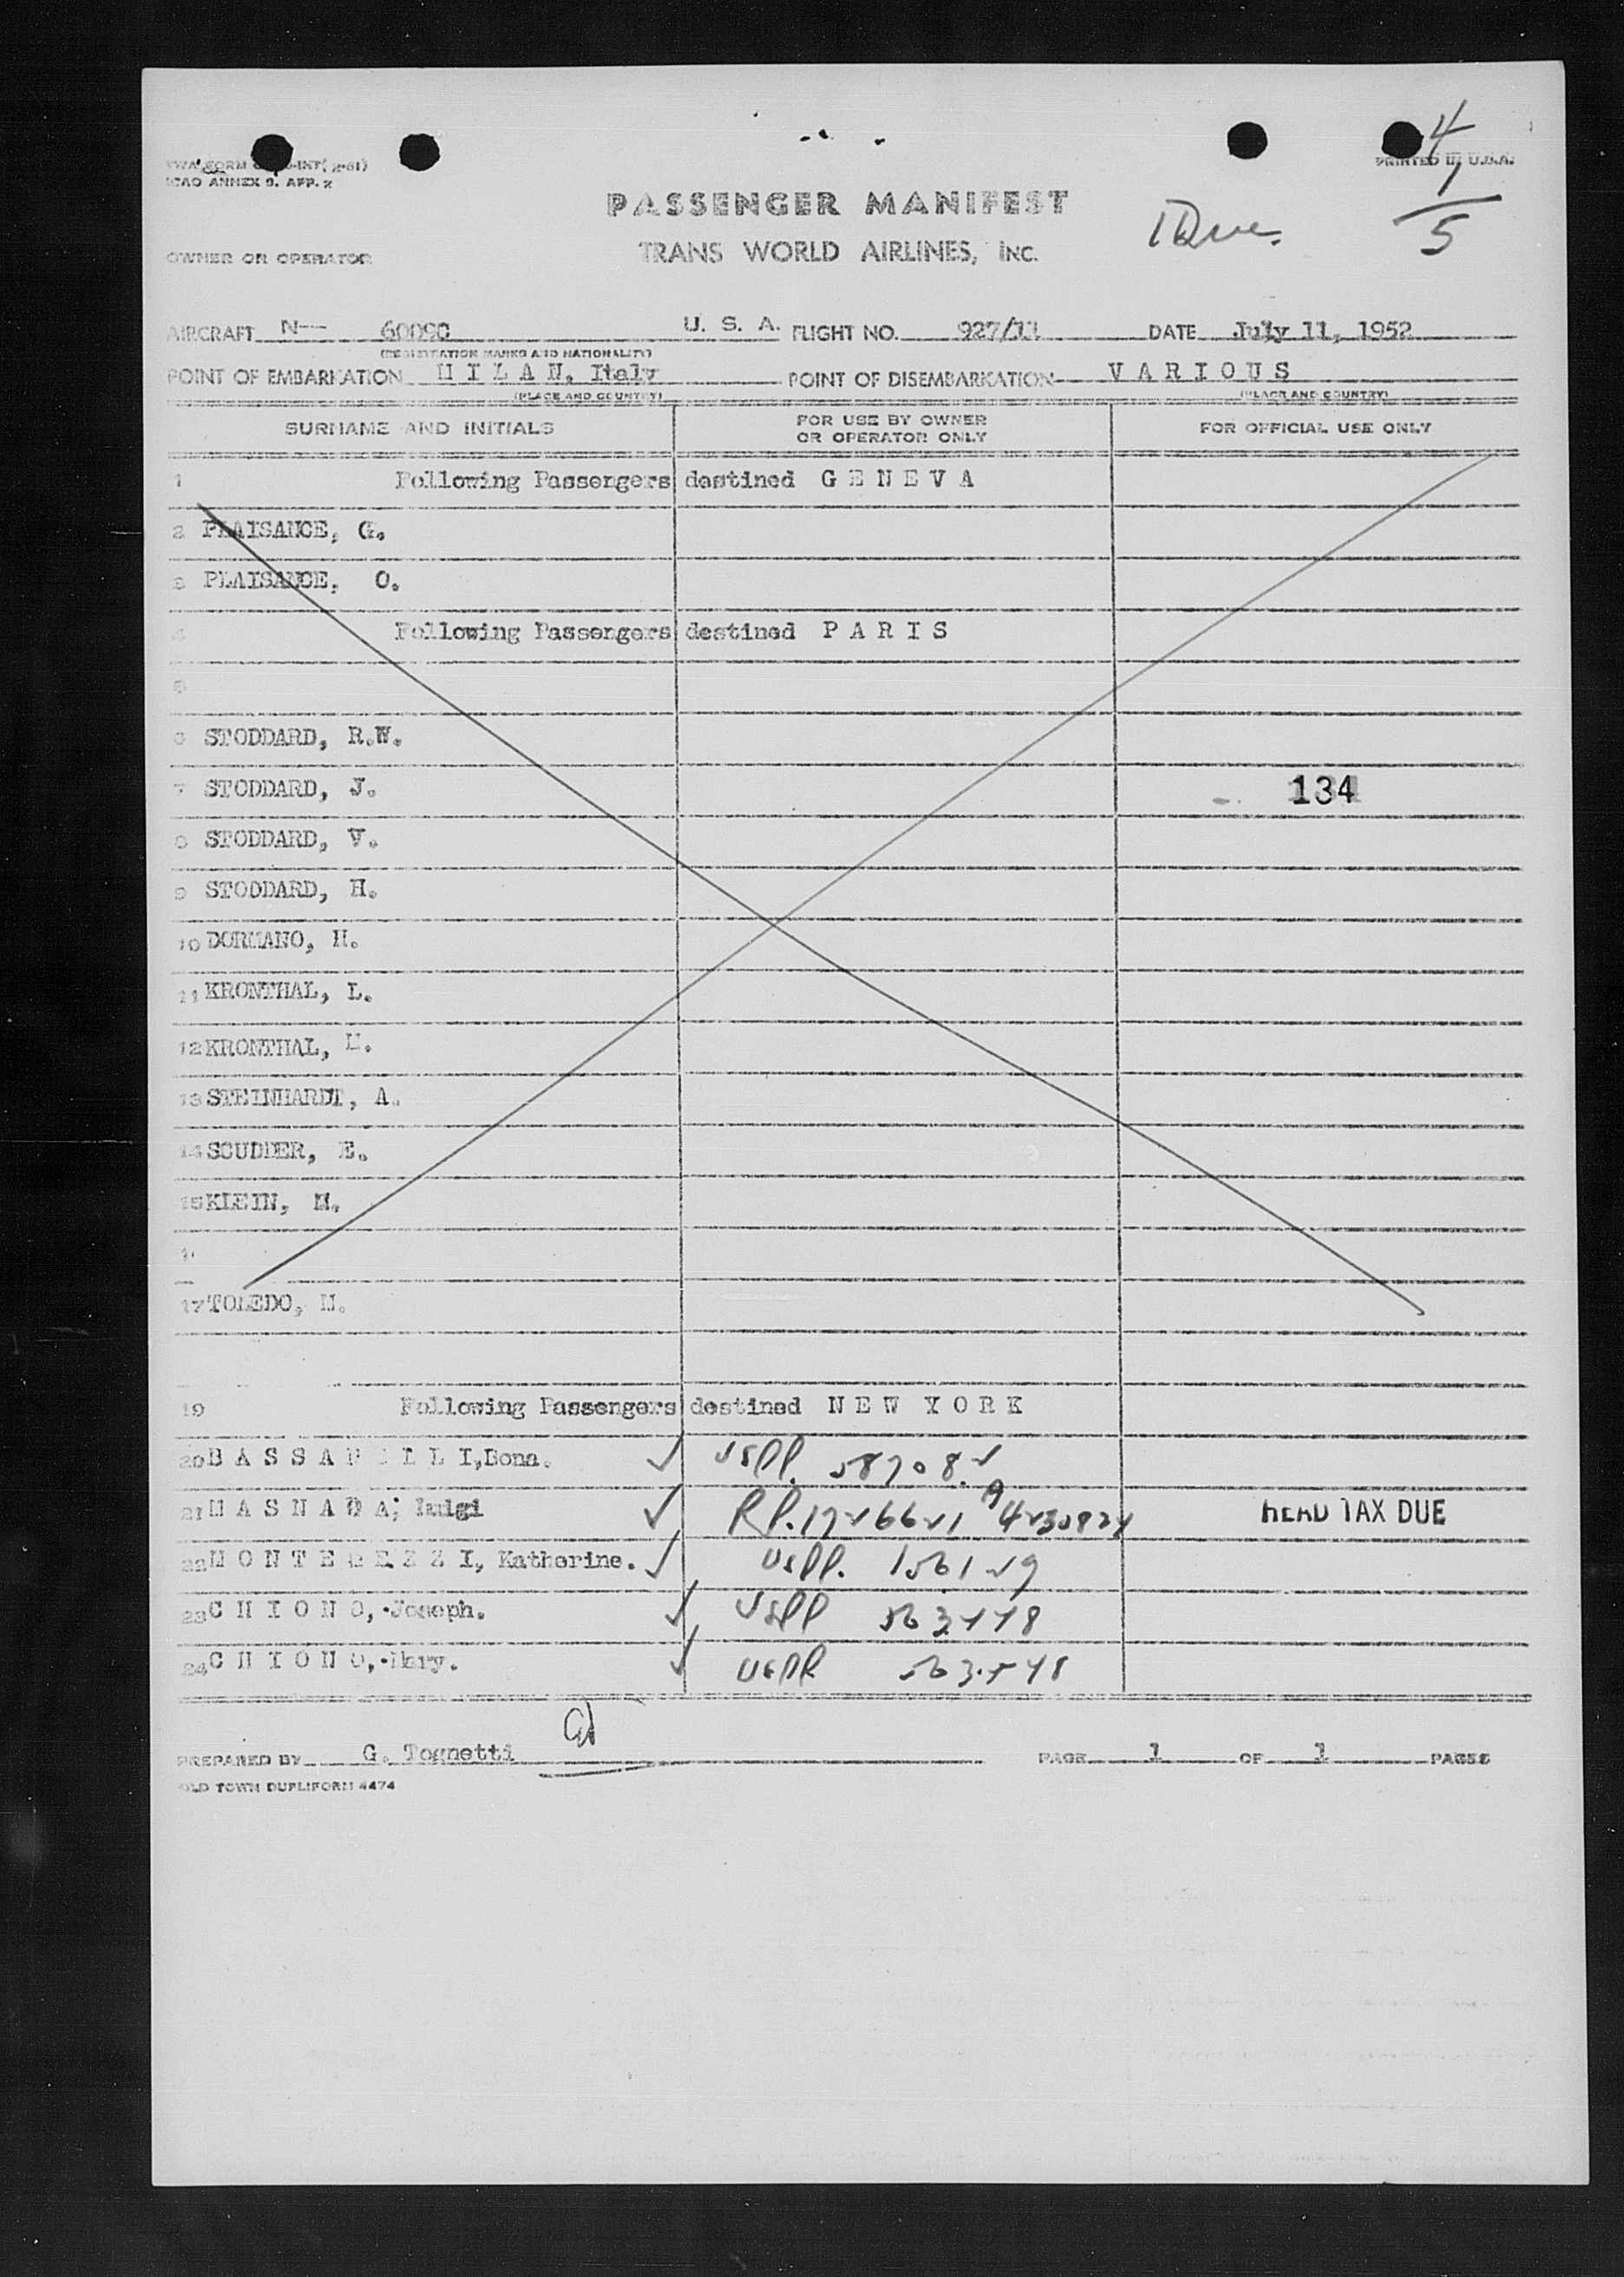 4
TWA FORM
PRINTED IN U.S.A.
ICAO ANNEX 9, APP. 2
1
PASSENGER MANIFEST
1 Due.
5
OWNER OR OPERATOR
TRANS WORLD AIRLINES, INC.
AIRCRAFT N-- 6009C U. S. A. FLIGHT NO. 927/11 DATE July 11, 1952
(REGISTRATION MARKS AND NATIONALITY)
POINT OF EMBARKATION M I L A N, Italy POINT OF DISEMBARKATION V A R I O U S
(PLACE AND COUNTRY) (PLACE AND COUNTRY)
SURNAME AND INITIALS FOR USE BY OWNER OR OPERATOR ONLY FOR OFFICIAL USE ONLY
1 Following Passengers destined G E N E V A
2 PLAISANCE, G.
3 PLAISANCE, O.
4 Following Passengers destined P A R I S
5
6 STODDARD, R.W.
7 STODDARD, J. 134
8 STODDARD, V.
9 STODDARD, H.
10 DORMANO, H.
11 KRONTHAL, L.
12 KRONTHAL, M.
13 STEINHARDT, A.
14 SCUDDER, E.
15 KLEIN, M.
17 TOLEDO, M.
19 Following Passengers destined N E W Y O R K
20 B A S S A N E L L I, Bona. ✓ USPP.
21 M A S N A D A; Luigi ✓ RP. HEAD TAX DUE
22 M O N T E M E Z Z I, Katherine. ✓ USPP.
23 C H I O N O, Joseph. ✓ USPP
24 C H I O N O, Mary. ✓ USPP
PREPARED BY G. Tognetti PAGE 1 OF 1 PAGES
OLD TOWN DUPLIFORM 4474